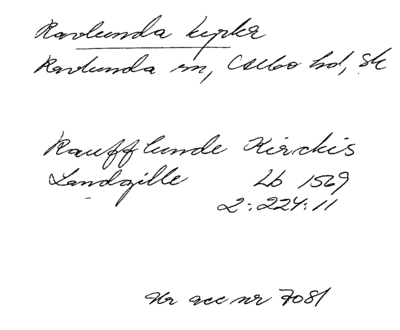 Ravlunda kyrka
Ravlunda sn, Albo hd, Sk
Raufflunde Kirckis
Landgille Lb 1569
2:224:11
Ur acc nr 7081